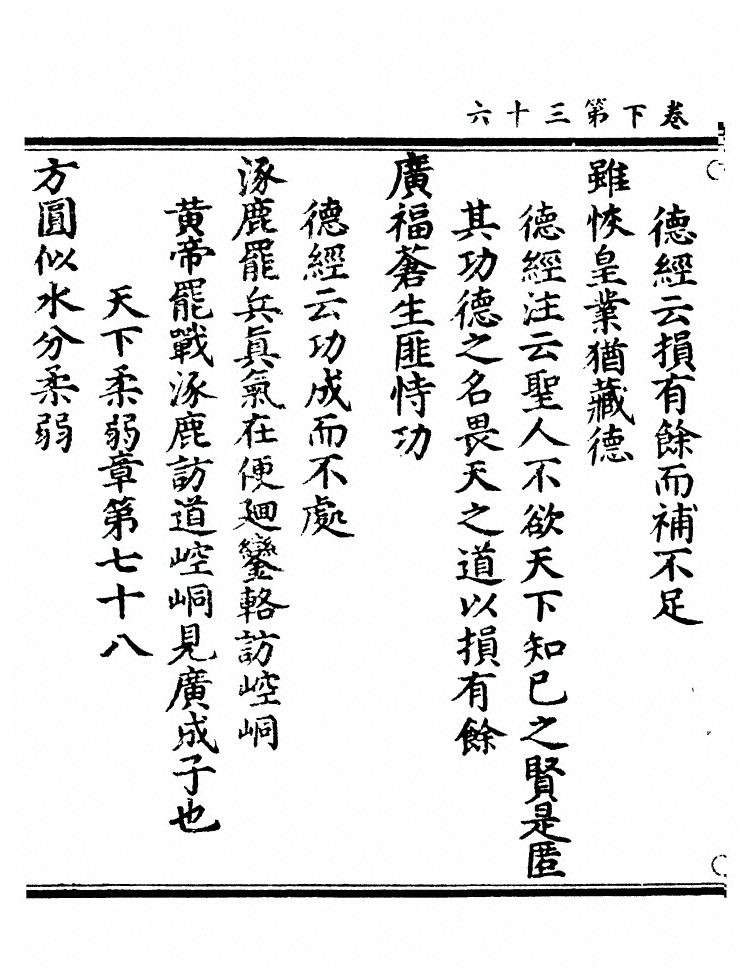 卷下第三十六
德經云損有餘而補不足
雖恢皇業猶藏德
德經注云聖人不欲天下知已之賢是匿
其功德之名畏天之道以損有餘
廣福蒼生匪恃功
德經云功成而不處
涿鹿罷兵眞氣在便廻鑾輅訪崆峒
黃帝罷戰涿鹿訪道崆峒見廣成子也
天下柔弱章第七十八
方圓似水分柔弱